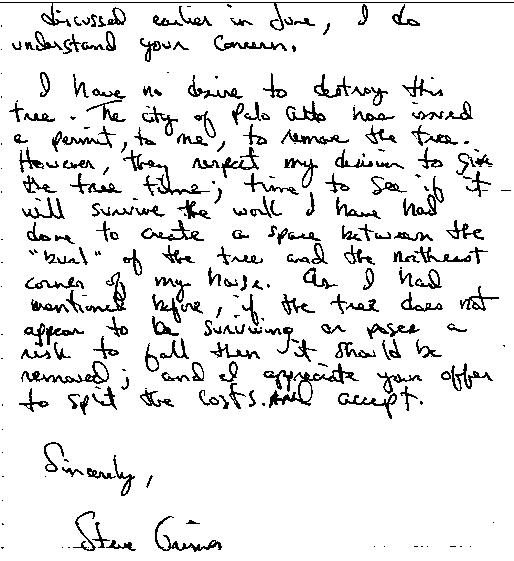 discussed earlier in June, I do
understand your concern.
I have no desire to destroy this
tree. The city of Palo Alto has issued
a permit, to me, to remove the tree.
However, they respect my decision to give
the tree time; time to see if it
will survive the work I have had
done to create a space between the
"burl" of the tree and the northeast
corner of my house. As I had
mentioned before, if the tree does not
appear to be surviving or poses a
risk to fall then it should be
removed; and I appreciate your offer
to split the costs. And accept.
Sincerely,
Steve